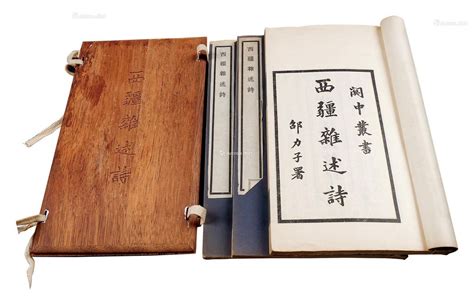 西疆雜述詩
西疆雜述詩
西疆雜述詩
關中叢書
西疆雜述詩
邵力子署